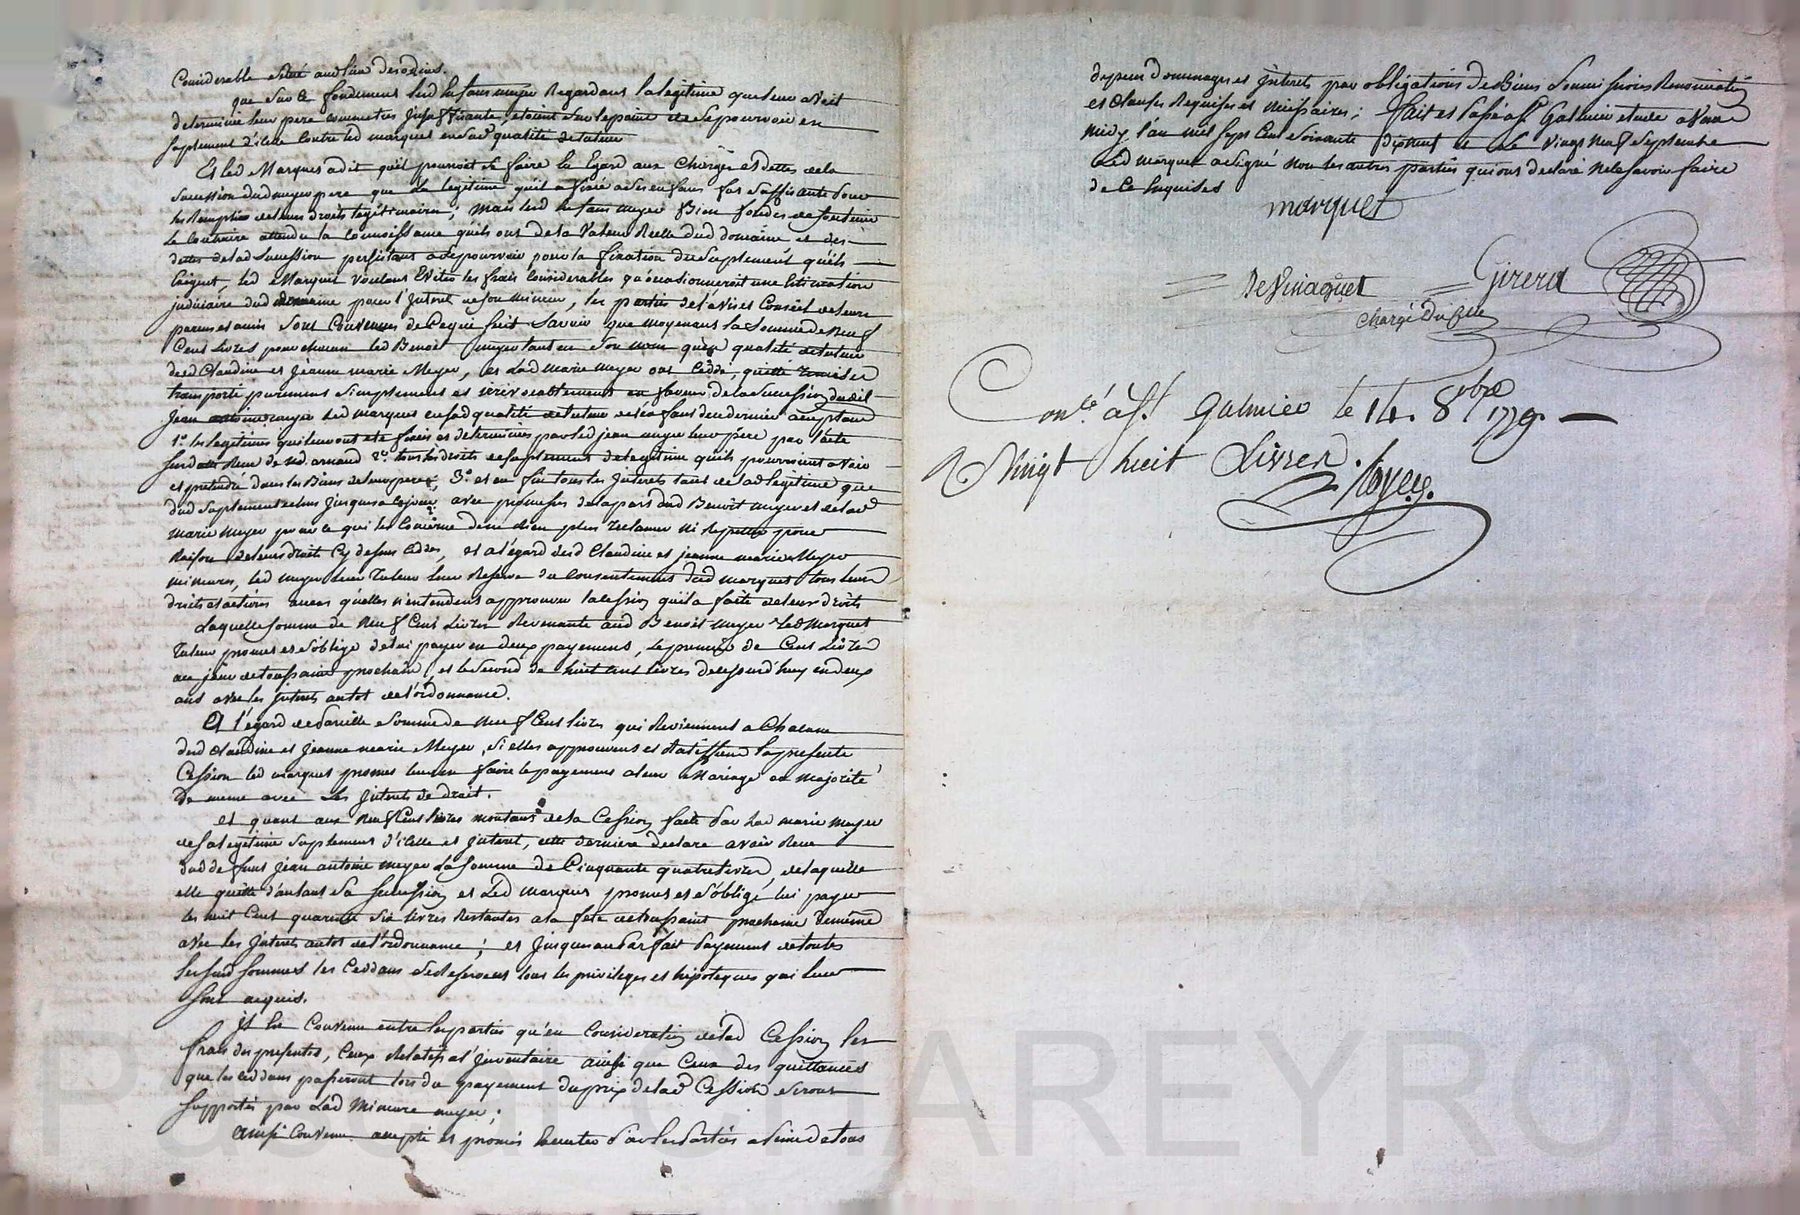 Considerable situé audlieu desodins.
que sur ce fondement lesd Enfans meyer Regardant la legitime que leur avoit
determiné leur pere comme tres Insuffisante, etoient sur le point de se pourvoir en
suplement d'icelle contre led marquet en sad qualité de tuteur
Et led Marquet a dit qu'il pourroit se faire Eu Egard aux Charges et dettes de la
sucession dud meyer pere que la legitime qu'il a fixée a ses enfans fut suffisante pour
les Remplir de leurs droits legitimaires; mais lesd Enfans meyer Bien fondés de soutenir
le Contraire attendu la connoissance qu'ils ont de la Valeur Reelle dud domaine et des
dettes de lad sucession persistant a se pourvoir pour la fixation du suplement qu'ils
Exigent, led Marquet voulant Eviter les frais Considerables qu'occasionneroit une Estimation
judiciaire dud domaine pour l'Interet de son mineur, les parties de l'avis et Conseil de leurs
parens et amis sont Convenues de Ce qui suit Savoir que moyenant la somme de neuf
Cent Livres pour chacun led Benoit meyer tant en son nom qu'en qualité de tuteur
desd Claudine et jeanne marie Meyer, et lad marie meyer ont Ceddé, quitté Remis et
transporté purement simplement et irrevocablement en faveur de la sucession dudit
jean antoine meyer led marquet en sad qualité de tuteur de l'enfant de ce dernier acceptant
1° les legitimes qui leur ont eté fixées et determinées par led jean meyer leur pere par l'acte
susdatté Reçu de me d. arnaud 2° tous les droits de suplement de legitime qu'ils pourroient avoir
et pretendre dans les Biens de leur pere, 3° et en fin tous les Interets tant de lad legitime que
dud suplement echus jusques a ce jour, avec promesses de la part dud Benoit meyer et de lad
marie meyer pour ce qui les Concerne de ne Rien plus Reclamer ni Repeter pour
Raison de leurs droits Cy dessus Ceddés, et a l'egard desd Claudine et jeanne marie Meyer
mineures, led meyer leur tuteur leur Reserve du Consentement dud marquet tous leurs
droits et actions au cas qu'elles n'entendent approuver la Cession qu'il a faite de leurs droits
Laquelle somme de neuf Cent Livres Revenante aud Benoit meyer led Marquet
tuteur promet et s'oblige de lui payer en deux payemens, le premier de Cent Livres
au jour de toussaint prochain, et le second de huit Cent livres de ce jourd'huy en deux
ans avec les Interets au tot de l'ordonnance.
A l'egard de Pareille somme de neuf Cent livres qui Reviennent a Chacune
desd Claudine et jeanne marie Meyer, si elles approuvent et Ratiffient la presente
Cession led marquet promet leur en faire le payement a leur mariage ou majorité
de meme avec les Interets de droit.
et quant aux neuf Cent livres montant de la Cession faite Par lad marie meyer
de sa legitime suplement d'icelle et Interet, cette derniere declare avoir Reçu
dud defunt jean antoine meyer la somme de Cinquante quatre livres, de laquelle
elle quitte d'autant sa sucession et led marquet promet et s'oblige lui payer
les huit Cent quarente six livres Restantes a la fete de toussaint prochaine de même
avec les Interets au tot de l'ordonnance; et jusques au Parfait Payement de toutes
lesusd sommes les Ceddans se Reservent tous les privileges et hipoteques qui leur
sont acquis.
Il Est Convenu entre les parties qu'en Consideration de lad Cession les
frais des presentes, Ceux Relatifs a l'Inventaire ainsi que Ceux des quittances
que les Ceddans passeront lors du payement du prix de lad Cession seront
supportés par led mineur meyer;
Ainsi Convenu accepté et promis Executer Par les Parties a Peine de tous
depens Dommages et Interets par obligations de Biens soumissions Renonciations
et Clauses Requises et necessaires; fait et Passé a st Galmier etude avant
midy l'an mil sept Cent soixante dix neuf et le vingt neuf septembre
Led marquet a signé non les autres parties qui ont declaré ne le savoir faire
de Ce Enquises
marquet
Girerd
Chargé
Con.lé à st Galmier le 14. 8bre 1779.
R Vingt huit Livres.